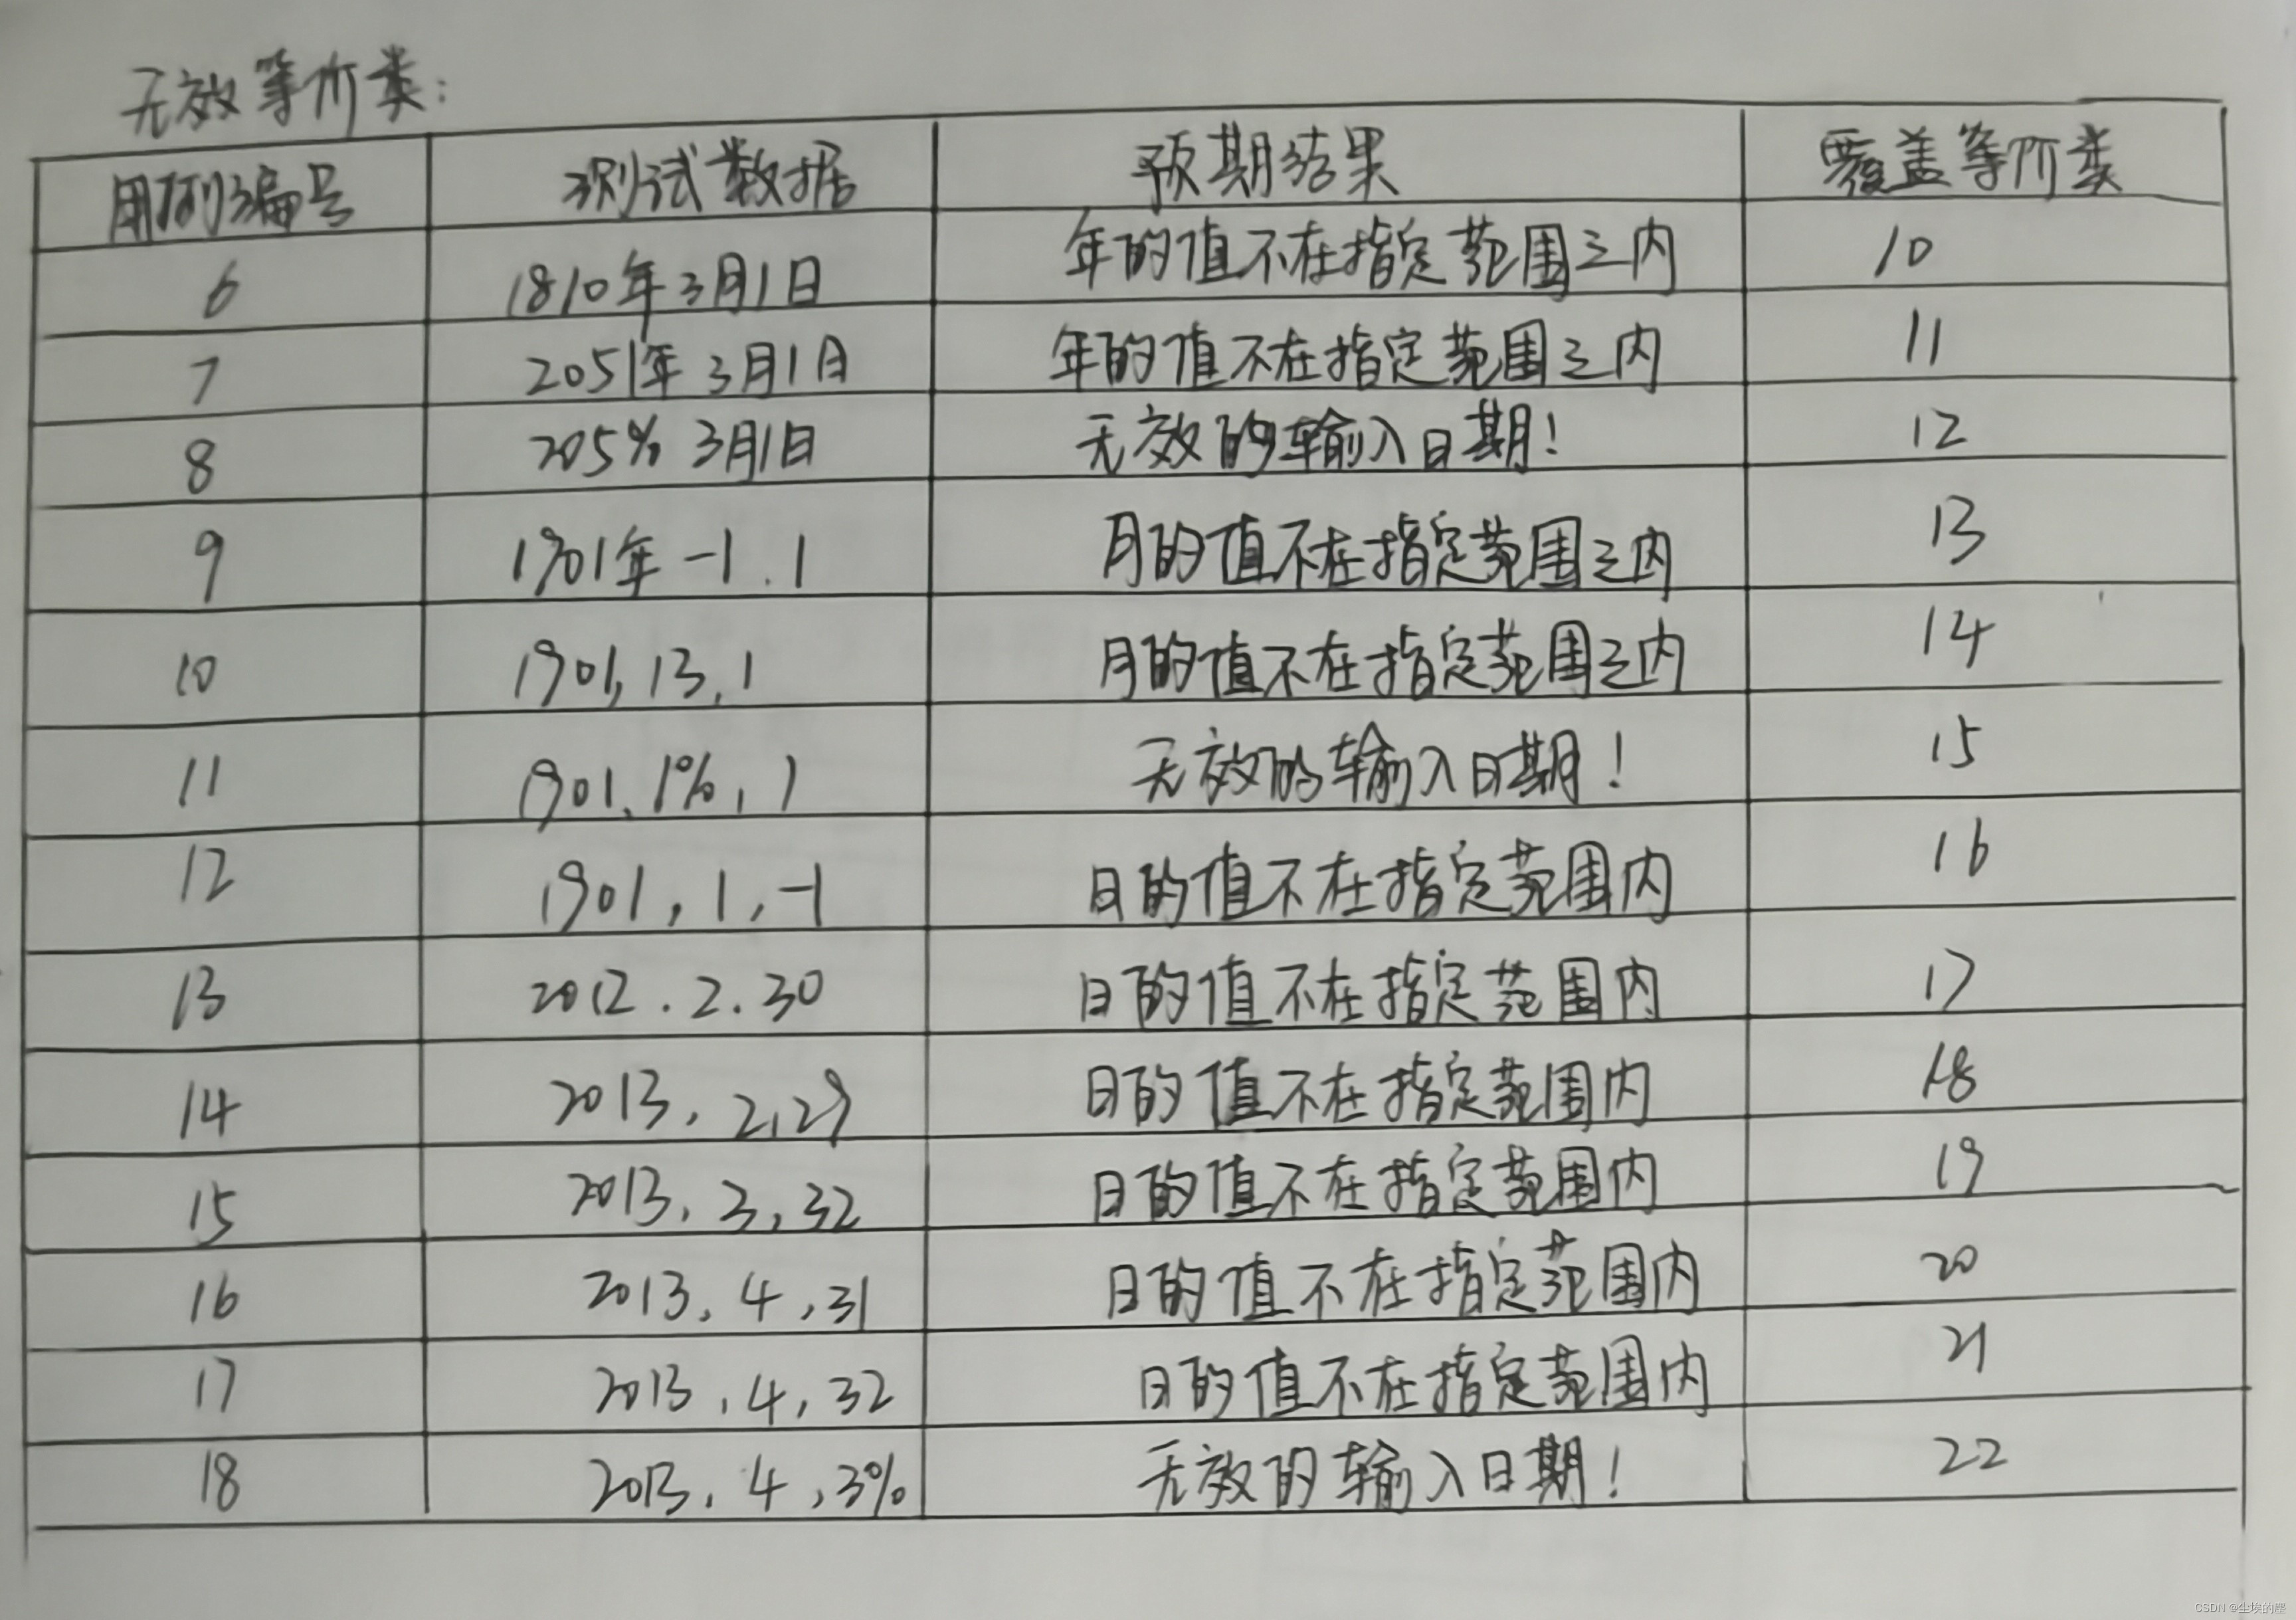 无效等价类：
用例编号 测试数据 预期结果 覆盖等价类
6 1810年3月1日 年的值不在指定范围之内 10
7 2051年3月1日 年的值不在指定范围之内 11
8 205% 3月1日 无效的输入日期！ 12
9 1901年 -1.1 月的值不在指定范围之内 13
10 1901,13,1 月的值不在指定范围之内 14
11 1901.1%,1 无效的输入日期！ 15
12 1901,1,-1 日的值不在指定范围内 16
13 2012.2.30 日的值不在指定范围内 17
14 2013,2,29 日的值不在指定范围内 18
15 2013,3,32 日的值不在指定范围内 19
16 2013,4,31 日的值不在指定范围内 20
17 2013,4,32 日的值不在指定范围内 21
18 2013,4,3% 无效的输入日期！ 22
CSDN @尘埃的墨